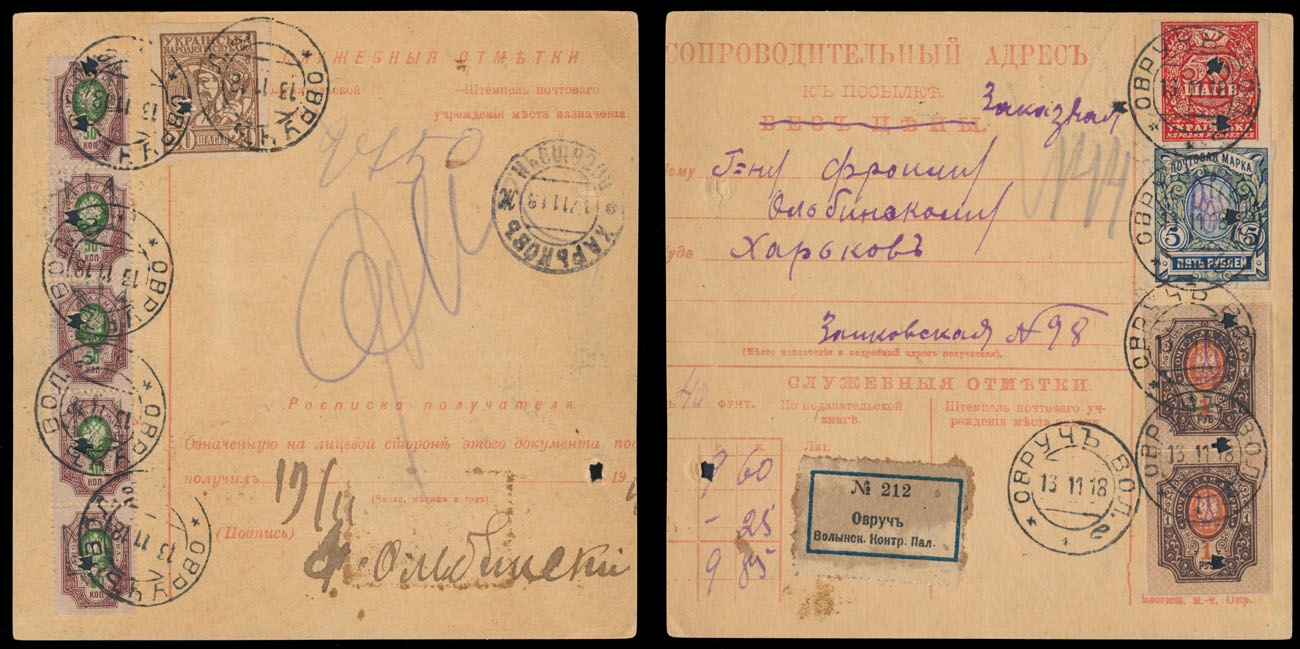 УКРАЇНСЬКА
НАРОДНЯ РЕСПУБЛІКА
ШАГІВ
СЛУЖЕБНЫЯ ОТМѢТКИ
подавательской
Штемпель почтоваго
учрежденія мѣста назначенія.
ОВРУЧЪ ВОЛ.
13 11 18
50
КОП
ХАРЬКОВЪ
Росписка получателя.
Означенную на лицевой сторонѣ этого документа пос
получилъ
19/11
191
(Число, мѣсяцъ и годъ).
(Подпись)
Ольбинский
СОПРОВОДИТЕЛЬНЫЙ АДРЕСЪ
КЪ ПОСЫЛКѢ
БЕЗЪ ЦѢНЫ.
Заказная
Кому Г-ну
Ольбинскому
Куда Харьковъ
№ 98
(Мѣсто назначенія и подробный адресъ получателя).
СЛУЖЕБНЫЯ ОТМѢТКИ.
40 ФУНТ.
По подавательской
книгѣ.
Штемпель почтоваго уч-
режденія мѣста подачи
Р. К.
Лит.
9 60
- 25
9 85
№ 212
Овручъ
Волынск. Контр. Пал.
ОВРУЧЪ ВОЛ.
13 11 18
50
ШАГІВ
УКРАЇНСЬКА
НАРОДНЯ РЕСПУБЛІКА
ПОЧТОВАЯ МАРКА
5 5
ПЯТЬ РУБЛЕЙ
ПОЧТОВАЯ МАРКА
1
РУБ
ПОЧТОВАЯ МАРКА
1
РУБ